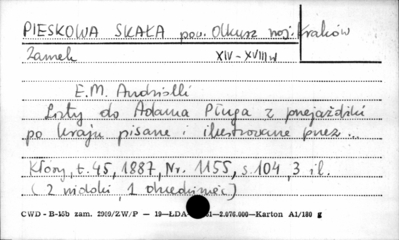 PIESKOWA SKAŁA pow. Olkusz woj. Kraków
Zamek XIV - XVIII w
E.M. Andriolli
Listy do Adama Pługa z przejażdżki
po kraju pisane i ilustrowane przez...
Kłosy, t. 45, 1887, Nr. 1155, s. 104, 3 il.
(2 widoki, 1 dziedziniec)
CWD - B-15b zam. 2909/ZW/P — 19—ŁDA 61—2.070.000—Karton A1/180 g